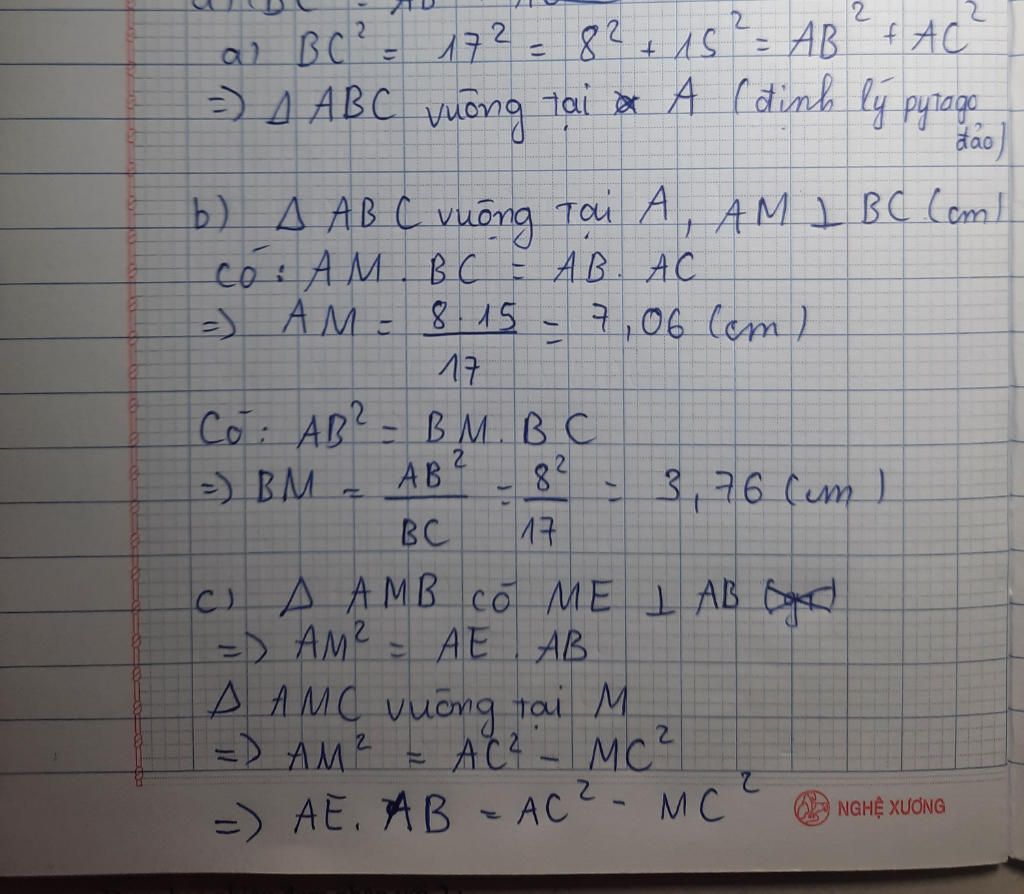 a) BC² = 17² = 8² + 15² = AB² + AC²
=> Δ ABC vuông tại A (định lý pytago
đảo)
b) Δ ABC vuông tại A, AM ⊥ BC (cm)
Có: AM . BC = AB . AC
=> AM = 8.15/17 = 7,06 (cm)
Có: AB² = BM . BC
=> BM = AB²/BC = 8²/17 = 3,76 (cm)
c) Δ AMB có ME ⊥ AB
=> AM² = AE . AB
Δ AMC vuông tại M
=> AM² = AC² - MC²
=> AE. AB = AC² - MC²
NGHỆ XƯƠNG